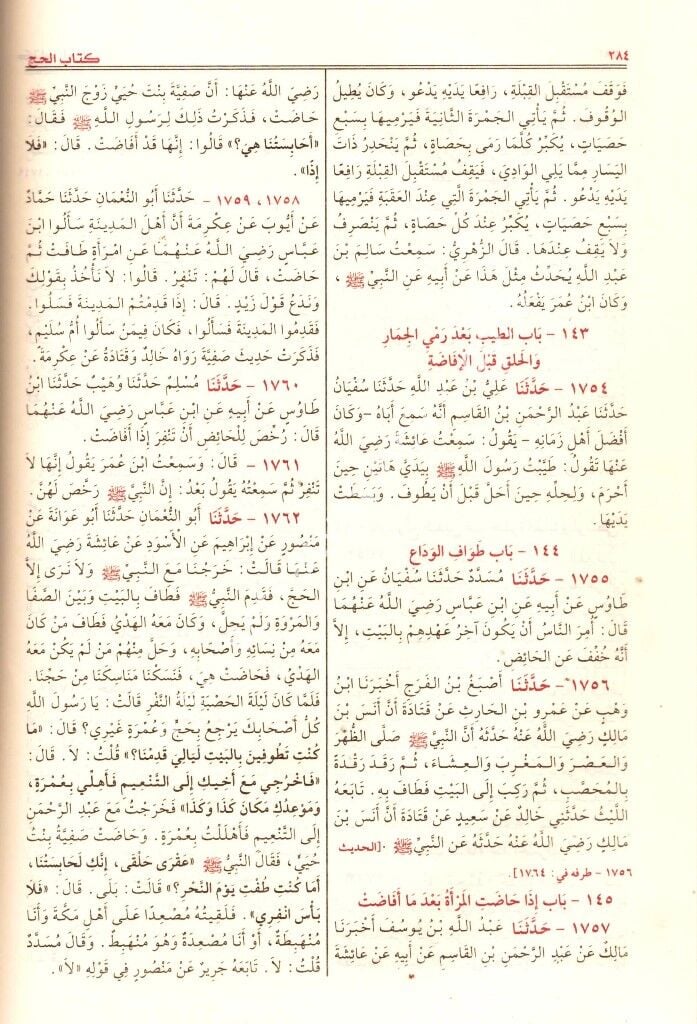 ٢٨٤
كتاب الحج
فَوَقَفَ مُسْتَقْبِلَ القِبْلَةِ، رَافِعًا يَدَيْهِ يَدْعُو، وَكَانَ يُطِيلُ
الوُقُوفَ. ثُمَّ يَأْتِي الجَمْرَةَ الثَّانِيَةَ فَيَرْمِيهَا بِسَبْعِ
حَصَيَاتٍ، يُكَبِّرُ كُلَّمَا رَمَى بِحَصَاةٍ، ثُمَّ يَنْحَدِرُ ذَاتَ
اليَسَارِ مِمَّا يَلِي الوَادِيَ، فَيَقِفُ مُسْتَقْبِلَ القِبْلَةِ رَافِعًا
يَدَيْهِ يَدْعُو. ثُمَّ يَأْتِي الجَمْرَةَ الَّتِي عِنْدَ العَقَبَةِ فَيَرْمِيهَا
بِسَبْعِ حَصَيَاتٍ، يُكَبِّرُ عِنْدَ كُلِّ حَصَاةٍ، ثُمَّ يَنْصَرِفُ
وَلاَ يَقِفُ عِنْدَهَا. قَالَ الزُّهْرِيُّ: سَمِعْتُ سَالِمَ بْنَ
عَبْدِ اللَّهِ يُحَدِّثُ مِثْلَ هَذَا عَنْ أَبِيهِ عَنِ النَّبِيِّ ﷺ،
وَكَانَ ابْنُ عُمَرَ يَفْعَلُهُ.
١٤٣ - باب الطيب بَعْدَ رَمْيِ الجِمَارِ
وَالحَلْقِ قَبْلَ الإِفَاضَةِ
١٧٥٤ - حَدَّثَنَا عَلِيُّ بْنُ عَبْدِ اللَّهِ حَدَّثَنَا سُفْيَانُ
حَدَّثَنَا عَبْدُ الرَّحْمَنِ بْنُ القَاسِمِ أَنَّهُ سَمِعَ أَبَاهُ -وَكَانَ
أَفْضَلَ أَهْلِ زَمَانِهِ - يَقُولُ: سَمِعْتُ عَائِشَةَ رَضِيَ اللَّهُ
عَنْهَا تَقُولُ: طَيَّبْتُ رَسُولَ اللَّهِ ﷺ بِيَدَيَّ هَاتَيْنِ حِينَ
أَحْرَمَ، وَلِحِلِّهِ حِينَ أَحَلَّ قَبْلَ أَنْ يَطُوفَ. وَبَسَطَتْ
يَدَيْهَا.
١٤٤ - باب طَوَافِ الوَدَاعِ
١٧٥٥ - حَدَّثَنَا مُسَدَّدٌ حَدَّثَنَا سُفْيَانُ عَنِ ابْنِ
طَاوُسٍ عَنْ أَبِيهِ عَنِ ابْنِ عَبَّاسٍ رَضِيَ اللَّهُ عَنْهُمَا
قَالَ: أُمِرَ النَّاسُ أَنْ يَكُونَ آخِرُ عَهْدِهِمْ بِالبَيْتِ، إِلاَّ
أَنَّهُ خُفِّفَ عَنِ الحَائِضِ.
١٧٥٦ - حَدَّثَنَا أَصْبَغُ بْنُ الفَرَجِ أَخْبَرَنَا ابْنُ
وَهْبٍ عَنْ عَمْرِو بْنِ الحَارِثِ عَنْ قَتَادَةَ أَنَّ أَنَسَ بْنَ
مَالِكٍ رَضِيَ اللَّهُ عَنْهُ حَدَّثَهُ أَنَّ النَّبِيَّ ﷺ صَلَّى الظُّهْرَ
وَالعَصْرَ وَالمَغْرِبَ وَالعِشَاءَ، ثُمَّ رَقَدَ رَقْدَةً
بِالمُحَصَّبِ، ثُمَّ رَكِبَ إِلَى البَيْتِ فَطَافَ بِهِ. تَابَعَهُ
اللَّيْثُ حَدَّثَنِي خَالِدٌ عَنْ سَعِيدٍ عَنْ قَتَادَةَ أَنَّ أَنَسَ بْنَ
مَالِكٍ رَضِيَ اللَّهُ عَنْهُ حَدَّثَهُ عَنِ النَّبِيِّ ﷺ. [الحديث
١٧٥٦ - طرفه في: ١٧٦٤].
١٤٥ - باب إِذَا حَاضَتِ المَرْأَةُ بَعْدَ مَا أَفَاضَتْ
١٧٥٧ - حَدَّثَنَا عَبْدُ اللَّهِ بْنُ يُوسُفَ أَخْبَرَنَا
مَالِكٌ عَنْ عَبْدِ الرَّحْمَنِ بْنِ القَاسِمِ عَنْ أَبِيهِ عَنْ عَائِشَةَ
رَضِيَ اللَّهُ عَنْهَا: أَنَّ صَفِيَّةَ بِنْتَ حُيَيٍّ زَوْجَ النَّبِيِّ ﷺ
حَاضَتْ، فَذَكَرْتُ ذَلِكَ لِرَسُولِ اللَّهِ ﷺ فَقَالَ:
«أَحَابِسَتُنَا هِيَ؟» قَالُوا: إِنَّهَا قَدْ أَفَاضَتْ. قَالَ: «فَلاَ
إِذًا».
١٧٥٨، ١٧٥٩ - حَدَّثَنَا أَبُو النُّعْمَانِ حَدَّثَنَا حَمَّادٌ
عَنْ أَيُّوبَ عَنْ عِكْرِمَةَ أَنَّ أَهْلَ المَدِينَةِ سَأَلُوا ابْنَ
عَبَّاسٍ رَضِيَ اللَّهُ عَنْهُمَا عَنِ امْرَأَةٍ طَافَتْ ثُمَّ
حَاضَتْ، قَالَ لَهُمْ: تَنْفِرُ. قَالُوا: لاَ نَأْخُذُ بِقَوْلِكَ
وَنَدَعُ قَوْلَ زَيْدٍ. قَالَ: إِذَا قَدِمْتُمُ المَدِينَةَ فَسَلُوا.
فَقَدِمُوا المَدِينَةَ فَسَأَلُوا، فَكَانَ فِيمَنْ سَأَلُوا أُمُّ سُلَيْمٍ،
فَذَكَرَتْ حَدِيثَ صَفِيَّةَ رَوَاهُ خَالِدٌ وَقَتَادَةُ عَنْ عِكْرِمَةَ.
١٧٦٠ - حَدَّثَنَا مُسْلِمٌ حَدَّثَنَا وُهَيْبٌ حَدَّثَنَا ابْنُ
طَاوُسٍ عَنْ أَبِيهِ عَنِ ابْنِ عَبَّاسٍ رَضِيَ اللَّهُ عَنْهُمَا
قَالَ: رُخِّصَ لِلْحَائِضِ أَنْ تَنْفِرَ إِذَا أَفَاضَتْ.
١٧٦١ - قَالَ: وَسَمِعْتُ ابْنَ عُمَرَ يَقُولُ إِنَّهَا لاَ
تَنْفِرُ ثُمَّ سَمِعْتُهُ يَقُولُ بَعْدُ: إِنَّ النَّبِيَّ ﷺ رَخَّصَ لَهُنَّ.
١٧٦٢ - حَدَّثَنَا أَبُو النُّعْمَانِ حَدَّثَنَا أَبُو عَوَانَةَ عَنْ
مَنْصُورٍ عَنْ إِبْرَاهِيمَ عَنِ الأَسْوَدِ عَنْ عَائِشَةَ رَضِيَ اللَّهُ
عَنْهَا قَالَتْ: خَرَجْنَا مَعَ النَّبِيِّ ﷺ وَلاَ نَرَى إِلاَّ
الحَجَّ، فَقَدِمَ النَّبِيُّ ﷺ فَطَافَ بِالبَيْتِ وَبَيْنَ الصَّفَا
وَالمَرْوَةِ وَلَمْ يَحِلَّ، وَكَانَ مَعَهُ الهَدْيُ فَطَافَ مَنْ كَانَ
مَعَهُ مِنْ نِسَائِهِ وَأَصْحَابِهِ، وَحَلَّ مِنْهُمْ مَنْ لَمْ يَكُنْ مَعَهُ
الهَدْيُ، فَحَاضَتْ هِيَ، فَنَسَكْنَا مَنَاسِكَنَا مِنْ حَجِّنَا.
فَلَمَّا كَانَ لَيْلَةُ الحَصْبَةِ لَيْلَةُ النَّفْرِ قَالَتْ: يَا رَسُولَ اللَّهِ
كُلُّ أَصْحَابِكَ يَرْجِعُ بِحَجٍّ وَعُمْرَةٍ غَيْرِي؟ قَالَ: «مَا
كُنْتِ تَطُوفِينَ بِالبَيْتِ لَيَالِيَ قَدِمْنَا؟» قُلْتُ: لاَ. قَالَ:
«فَاخْرُجِي مَعَ أَخِيكِ إِلَى التَّنْعِيمِ فَأَهِلِّي بِعُمْرَةٍ،
وَمَوْعِدُكِ مَكَانَ كَذَا وَكَذَا» فَخَرَجْتُ مَعَ عَبْدِ الرَّحْمَنِ
إِلَى التَّنْعِيمِ فَأَهْلَلْتُ بِعُمْرَةٍ. وَحَاضَتْ صَفِيَّةُ بِنْتُ
حُيَيٍّ، فَقَالَ النَّبِيُّ ﷺ «عَقْرَى حَلْقَى، إِنَّكِ لَحَابِسَتُنَا،
أَمَا كُنْتِ طُفْتِ يَوْمَ النَّحْرِ؟» قَالَتْ: بَلَى. قَالَ: «فَلاَ
بَأْسَ انْفِرِي». فَلَقِيتُهُ مُصْعِدًا عَلَى أَهْلِ مَكَّةَ وَأَنَا
مُنْهَبِطَةٌ، أَوْ أَنَا مُصْعِدَةٌ وَهُوَ مُنْهَبِطٌ. وَقَالَ مُسَدَّدٌ
قُلْتُ: لاَ. تَابَعَهُ جَرِيرٌ عَنْ مَنْصُورٍ فِي قَوْلِهِ «لاَ».